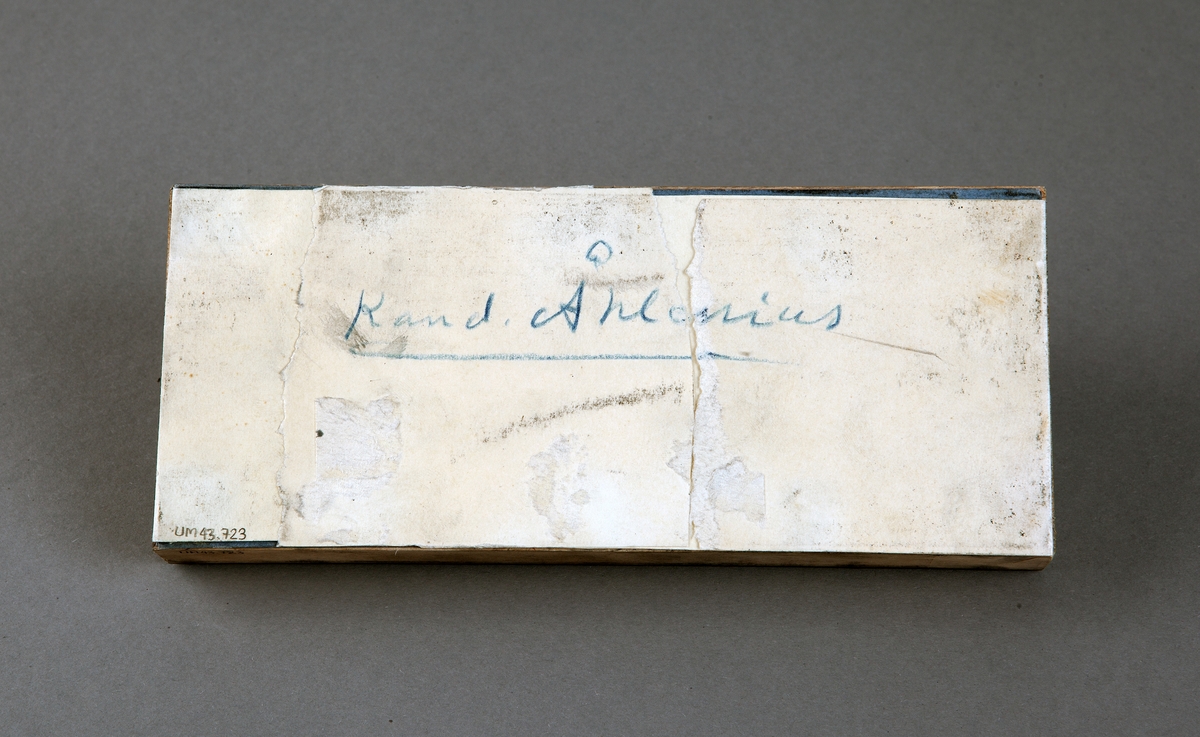 Kand. Ahlenius
UM43.723